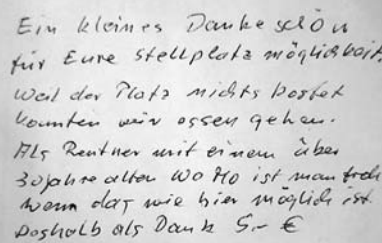 Ein kleines Dankeschön
für Eure Stellplatzmöglichkeit.
Weil der Platz nichts kostet
konnten wir essen gehen.
Als Rentner mit einem über
30 Jahre alten WoMo ist man froh
wenn das wie hier möglich ist.
Deshalb als Dank 5,- €